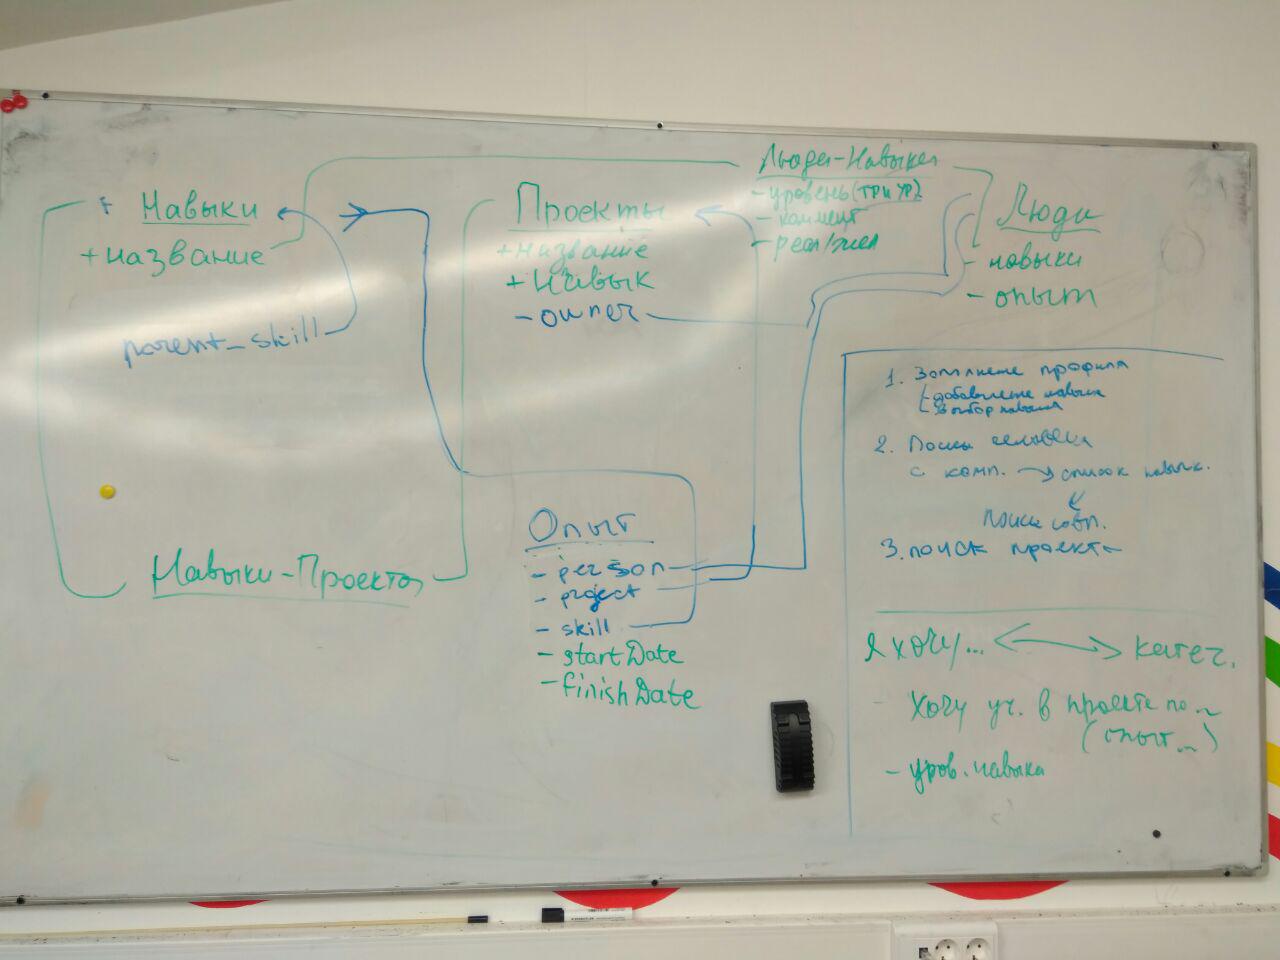 + Навыки
+ название
parent_skill
Навыки-Проекта
Проекты
+ название
+ Навык
- owner
Люди-Навыки
- уровень (три ур)
- коммент
Люди
- навыки
- опыт
Опыт
- person
- project
- skill
- startDate
- finishDate
1. профиля
2. Поиск человека
с комп. → список навык.
Поиск
3. поиск проекта
Я хочу...
- Хочу уч. в проекте по
(опыт...)
- уров. навыка